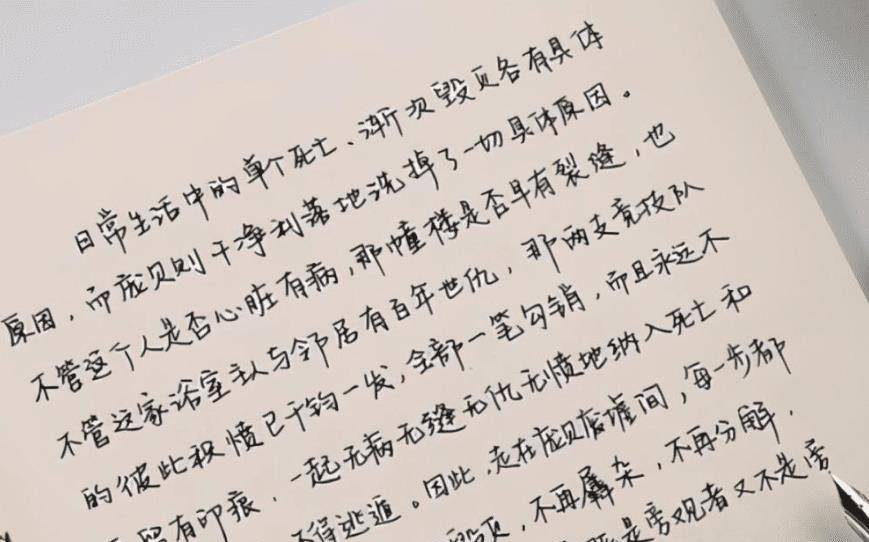 日常生活中的单个死亡、渐次毁各有具体
原因，而庞贝则干净利落地洗掉了一切具体原因。
不管这个人是否心脏有病，那幢楼是否早有裂缝，也
不管这家浴室主人与邻居有百年世仇，那两支竞技队
的彼此积愤已千钧一发，全部一笔勾销，而且永远不
留有印痕，一起无病无缝无仇无愤地纳入死亡和
不得逃遁。因此，走在庞贝废墟间，每一步都
不再羼杂，不再分解，
是旁观者又不是旁